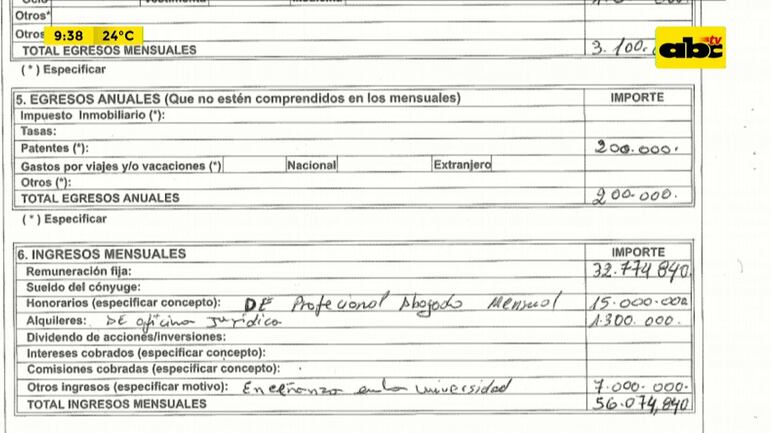 Otros*
Otros
9:38 24°C
abc tv
TOTAL EGRESOS MENSUALES 3.100.
(*) Especificar
5. EGRESOS ANUALES (Que no estén comprendidos en los mensuales) IMPORTE
Impuesto Inmobiliario (*):
Tasas:
Patentes (*): 200.000.
Gastos por viajes y/o vacaciones (*) Nacional Extranjero
Otros (*):
TOTAL EGRESOS ANUALES 200.000.
(*) Especificar
6. INGRESOS MENSUALES IMPORTE
Remuneración fija: 32.774.840.
Sueldo del cónyuge:
Honorarios (especificar concepto): DE Profecional Abogado Mensual 15.000.000
Alquileres: DE oficina Juridica 1.300.000.
Dividendo de acciones/inversiones:
Intereses cobrados (especificar concepto):
Comisiones cobradas (especificar concepto):
Otros ingresos (especificar motivo): Enceñanza en la universidad 7.000.000.
TOTAL INGRESOS MENSUALES 56.074.840